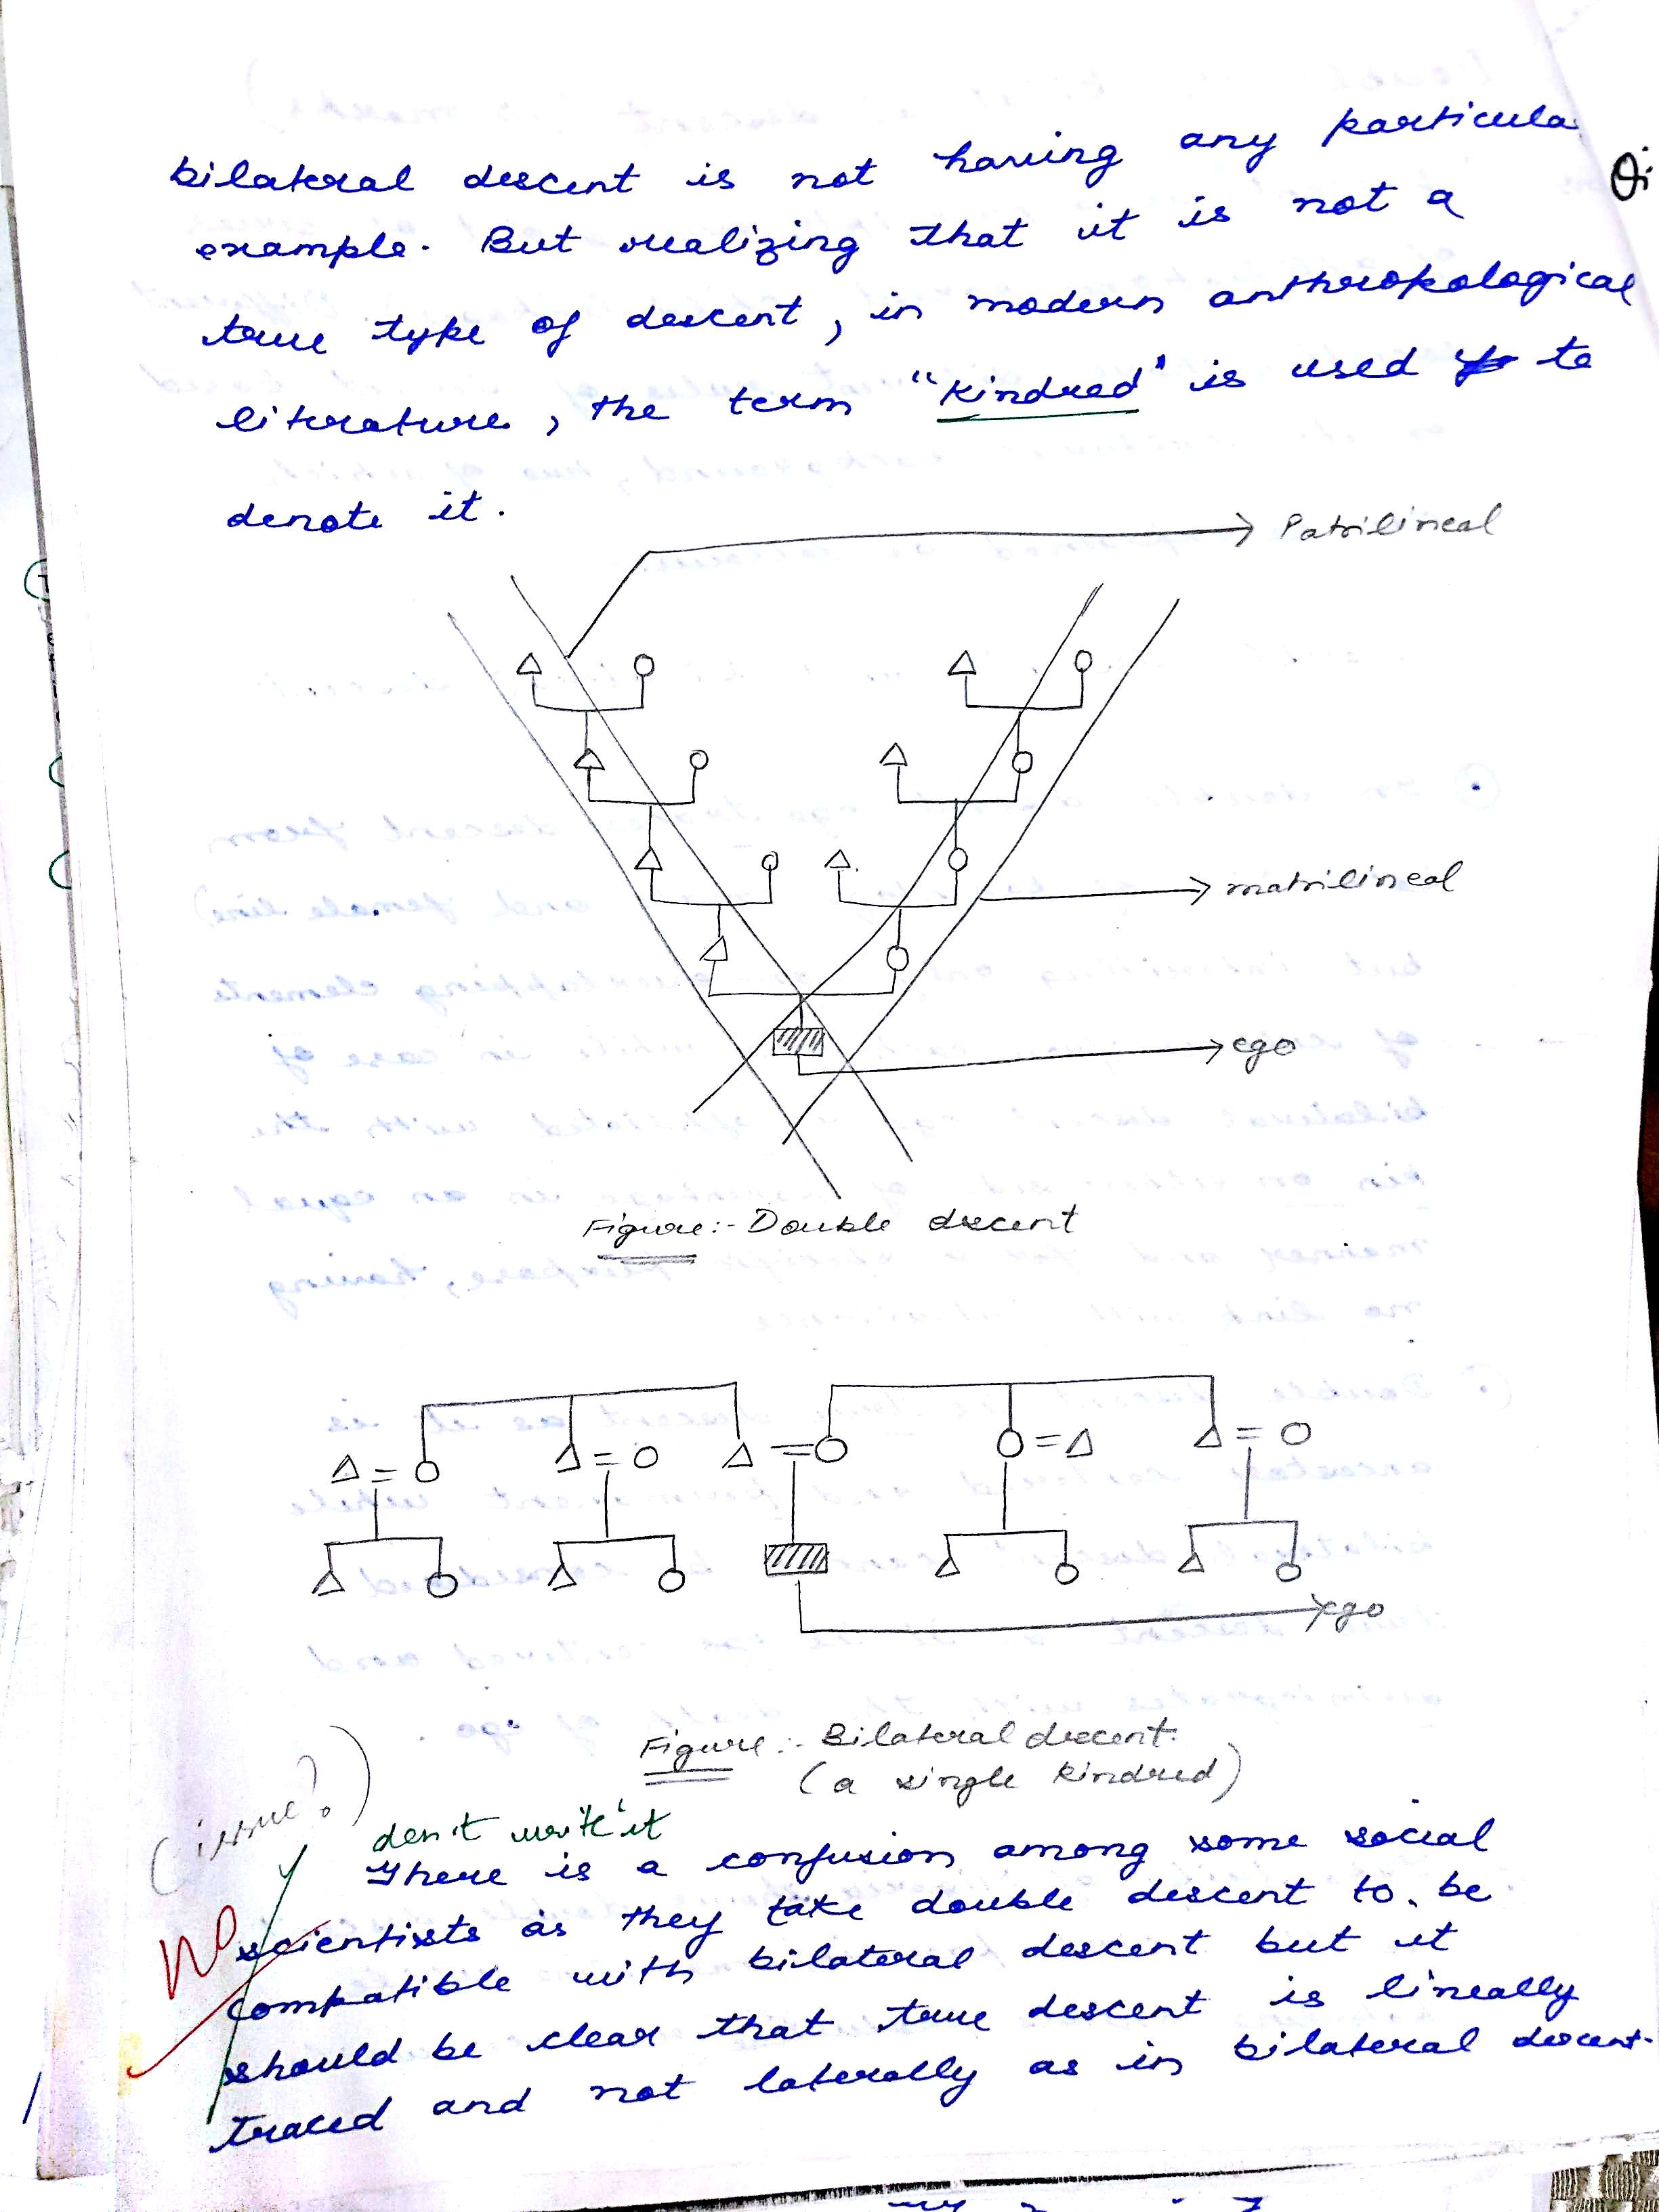 bilateral descent is not having any particula
example. But realizing that it is not a
true type of descent, in modern anthropological
literature, the term "Kindred" is used to
denote it.
Patrilineal
matrilineal
ego
Figure:- Double descent
ego
Figure:- Bilateral descent.
(a single kindred)
(issue?)
don't write it
There is a confusion among some social
NO
scientists as they take double descent to be
compatible with bilateral descent but it
should be clear that true descent is lineally
traced and not laterally as in bilateral descent.